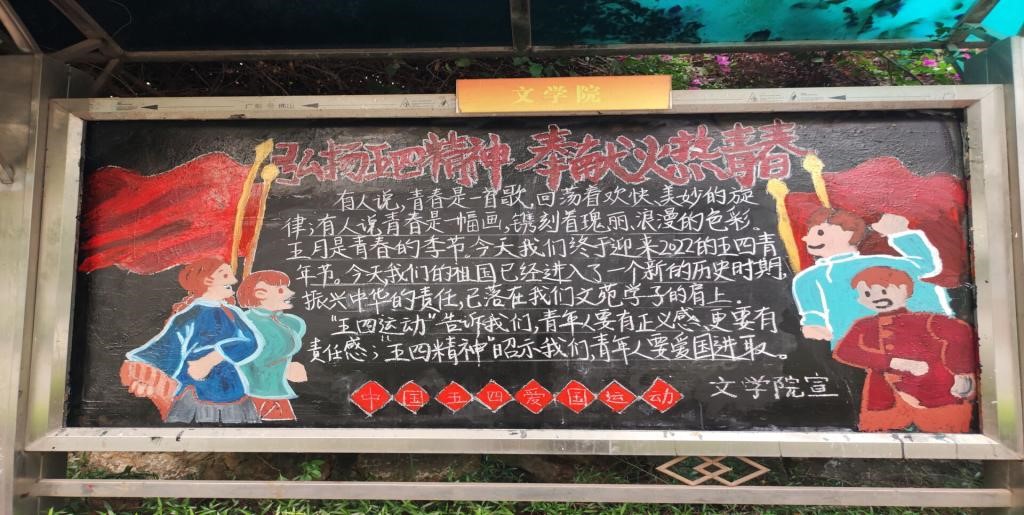 文学院
弘扬五四精神 奉献火热青春
有人说,青春是一首歌,回荡着欢快、美妙的旋
律;有人说青春是一幅画,镌刻着瑰丽、浪漫的色彩。
五月是青春的季节。今天我们终于迎来2022的五四青
年节。今天我们的祖国已经进入了一个新的历史时期,
振兴中华的责任,已落在我们文苑学子的肩上.
“五四运动”告诉我们,青年人要有正义感、更要有
责任感;“五四精神”昭示我们,青年人要爱国进取。
中国五四爱国运动
文学院宣